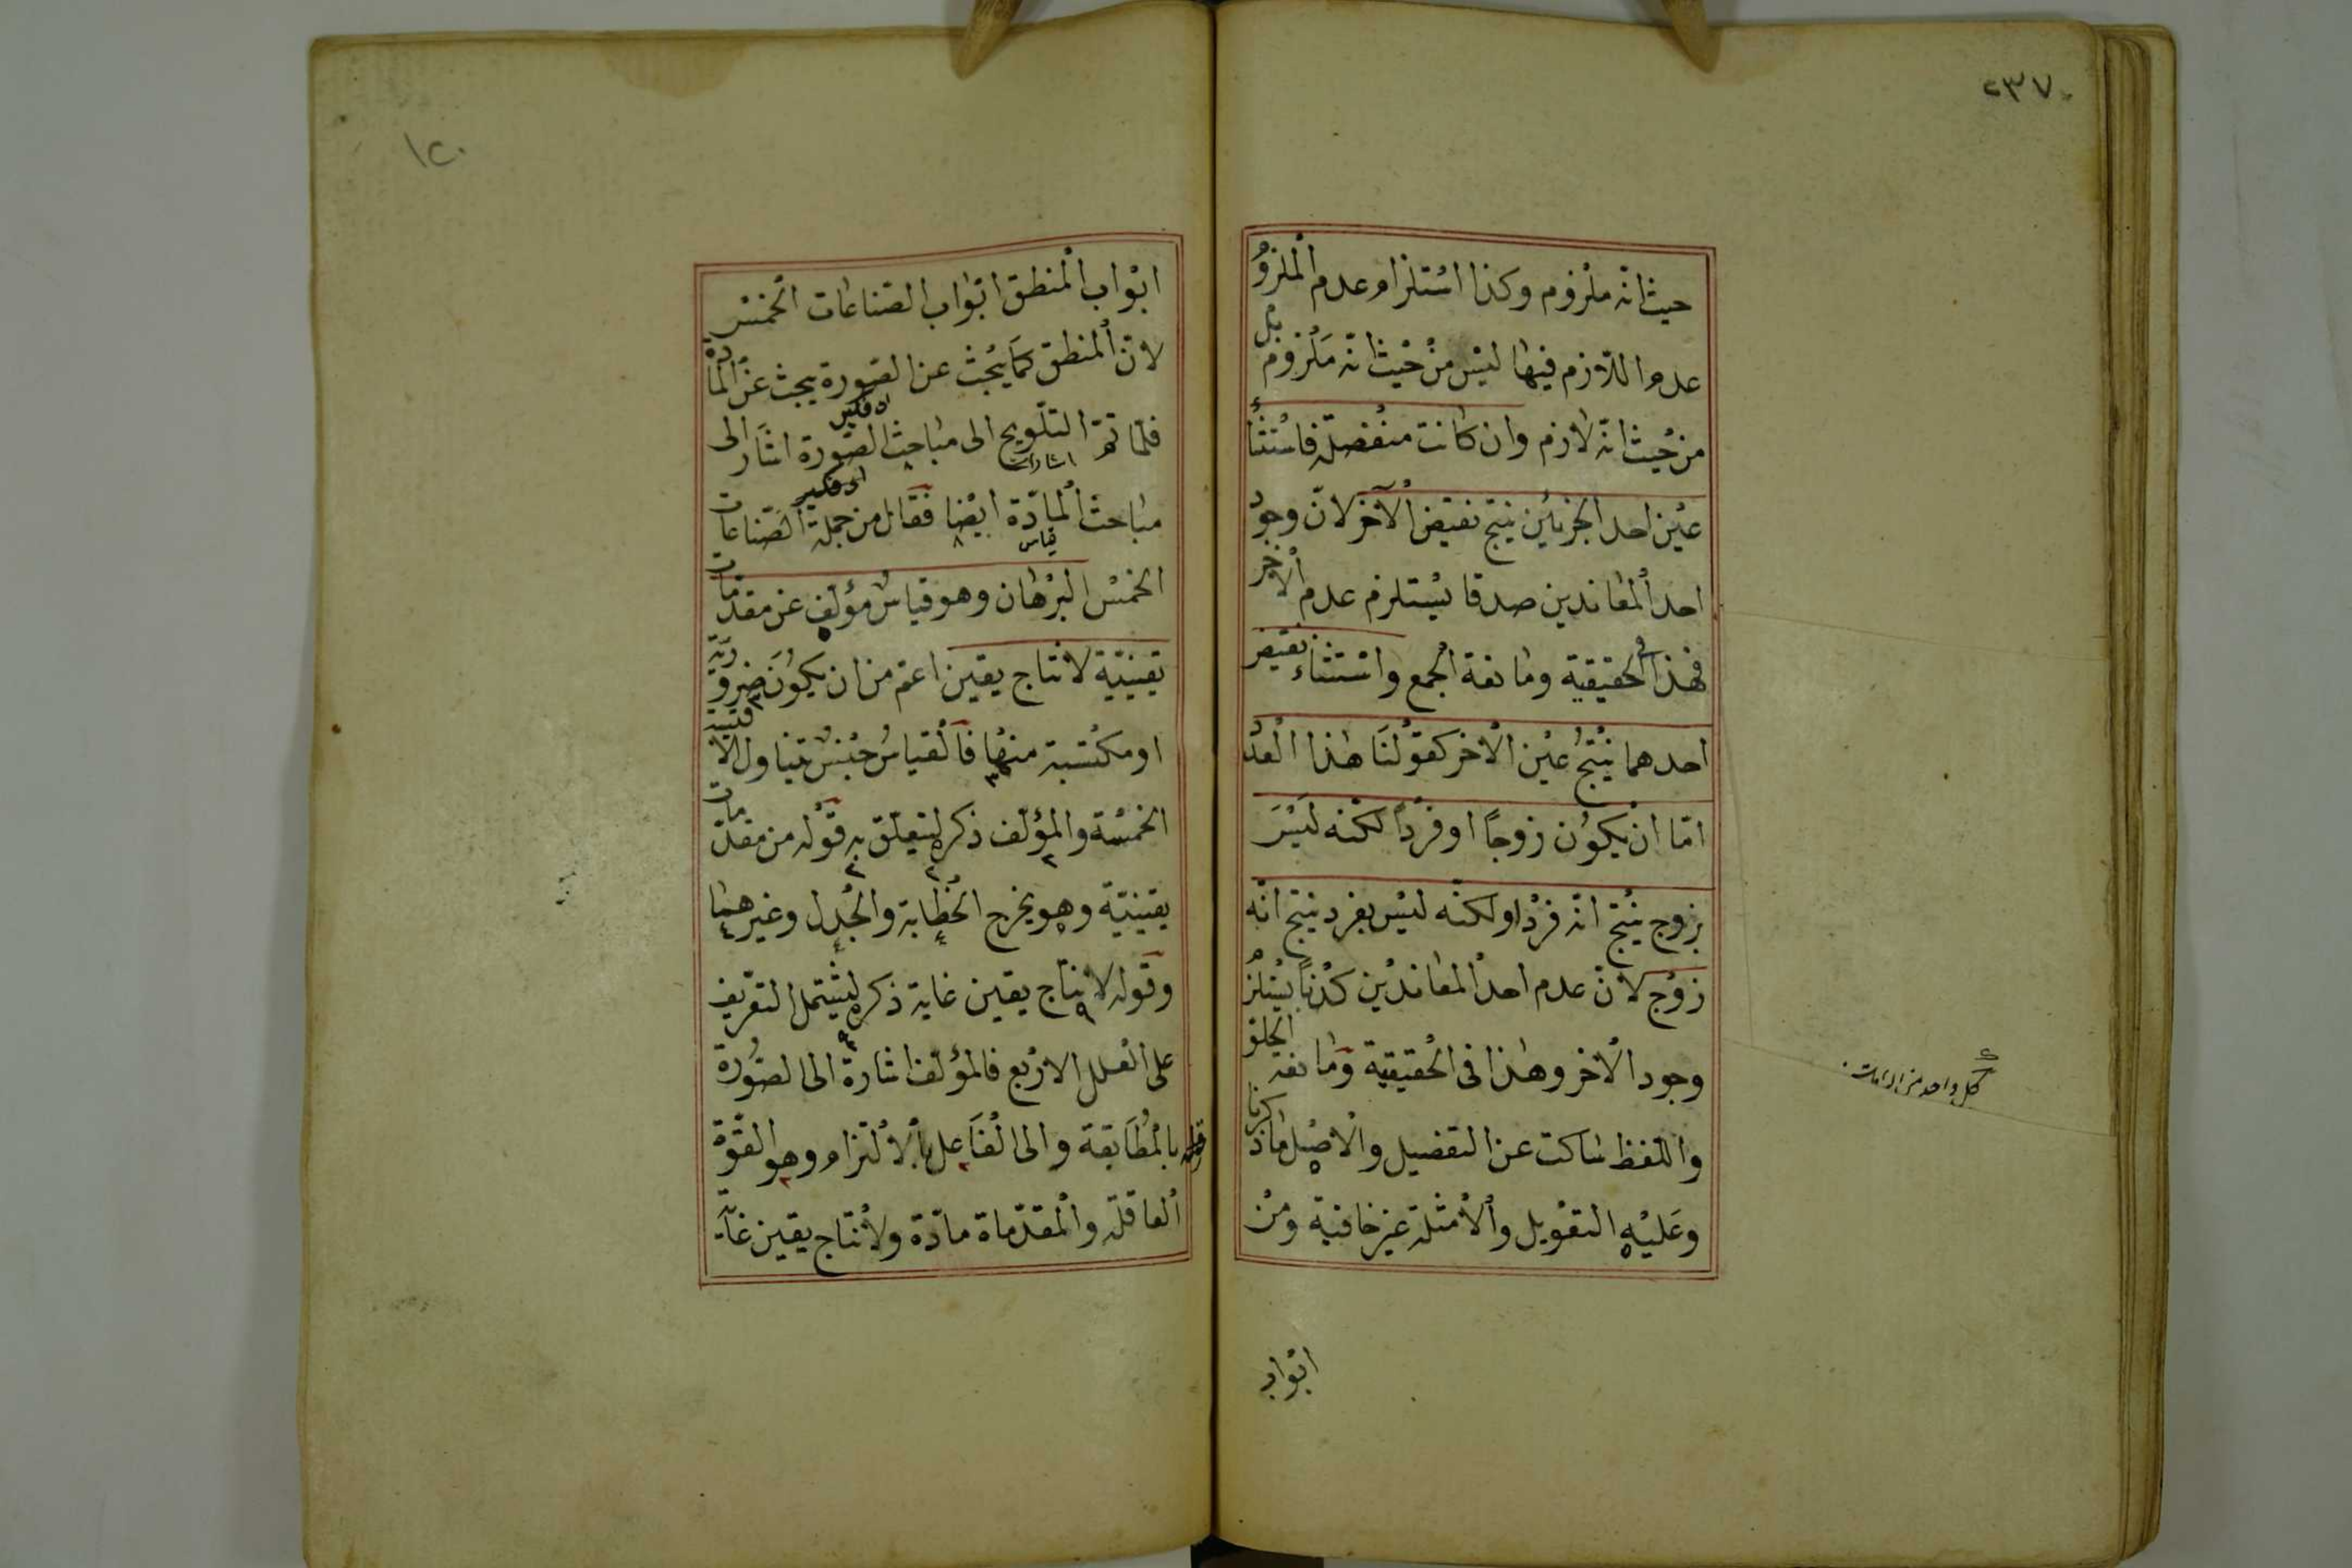 ٢٣٧
حيث انّه ملزوم وكذا استلزام عدم الملزوم
عدم اللّازم فيها ليس من حيث انّه ملزوم بل
من حيث انّه لازم وان كانت منفصلة فاستثناء
عين احد الجزئين ينتج نقيض الآخر لانّ وجود
احد المعاندين صدقا يستلزم عدم الاخر
فهذا فى الحقيقية ومانعة الجمع واستثناء نقيض
احدهما ينتج عين الاخر كقولنا هذا العدد
امّا ان يكون زوجاً او فرداً لكنّه ليس
بزوج ينتج انّه فرد او لكنّه ليس بفرد ينتج انّه
زوج لانّ عدم احد المعاندين كذباً يستلزم
وجود الاخر وهذا فى الحقيقية ومانعة الخلوّ
واللّفظ ساكت عن التفصيل والاصل ما ذكرنا
وعليه التعويل والأمثلة غير خافية ومن
ابواب
كل واحد من
١٢٠
ابواب المنطق ابواب الصّناعات الخمس
لانّ المنطق كما يبحث عن الصّورة يبحث عن المادّة
فلمّا تمّ التّلويح الى مباحث الصّورة اشار الى
اشارات
مباحث المادّة ايضا فقال من جملة الصّناعات
قياس
الخمس البرهان وهو قياس مؤلف عن مقدّمات
يقينيّة لانتاج يقين اعمّ من ان يكون ضروريّة
او مكتسبة منها فالقياس جنس يتناول الاقيسة
الخمسة والمؤلّف ذكره ليتعلّق به قوله من مقدّمات
يقينيّة وهو يخرج الخطابة والجدل وغيرهما
وقوله لانتاج يقين غاية ذكره ليشتمل التعريف
على العلل الاربع فالمؤلّف اشارة الى الصّورة
بالمطابقة والى الفاعل بالالتزام وهو القوّة
العاقلة والمقدّماة مادّة ولانتاج يقين غاية